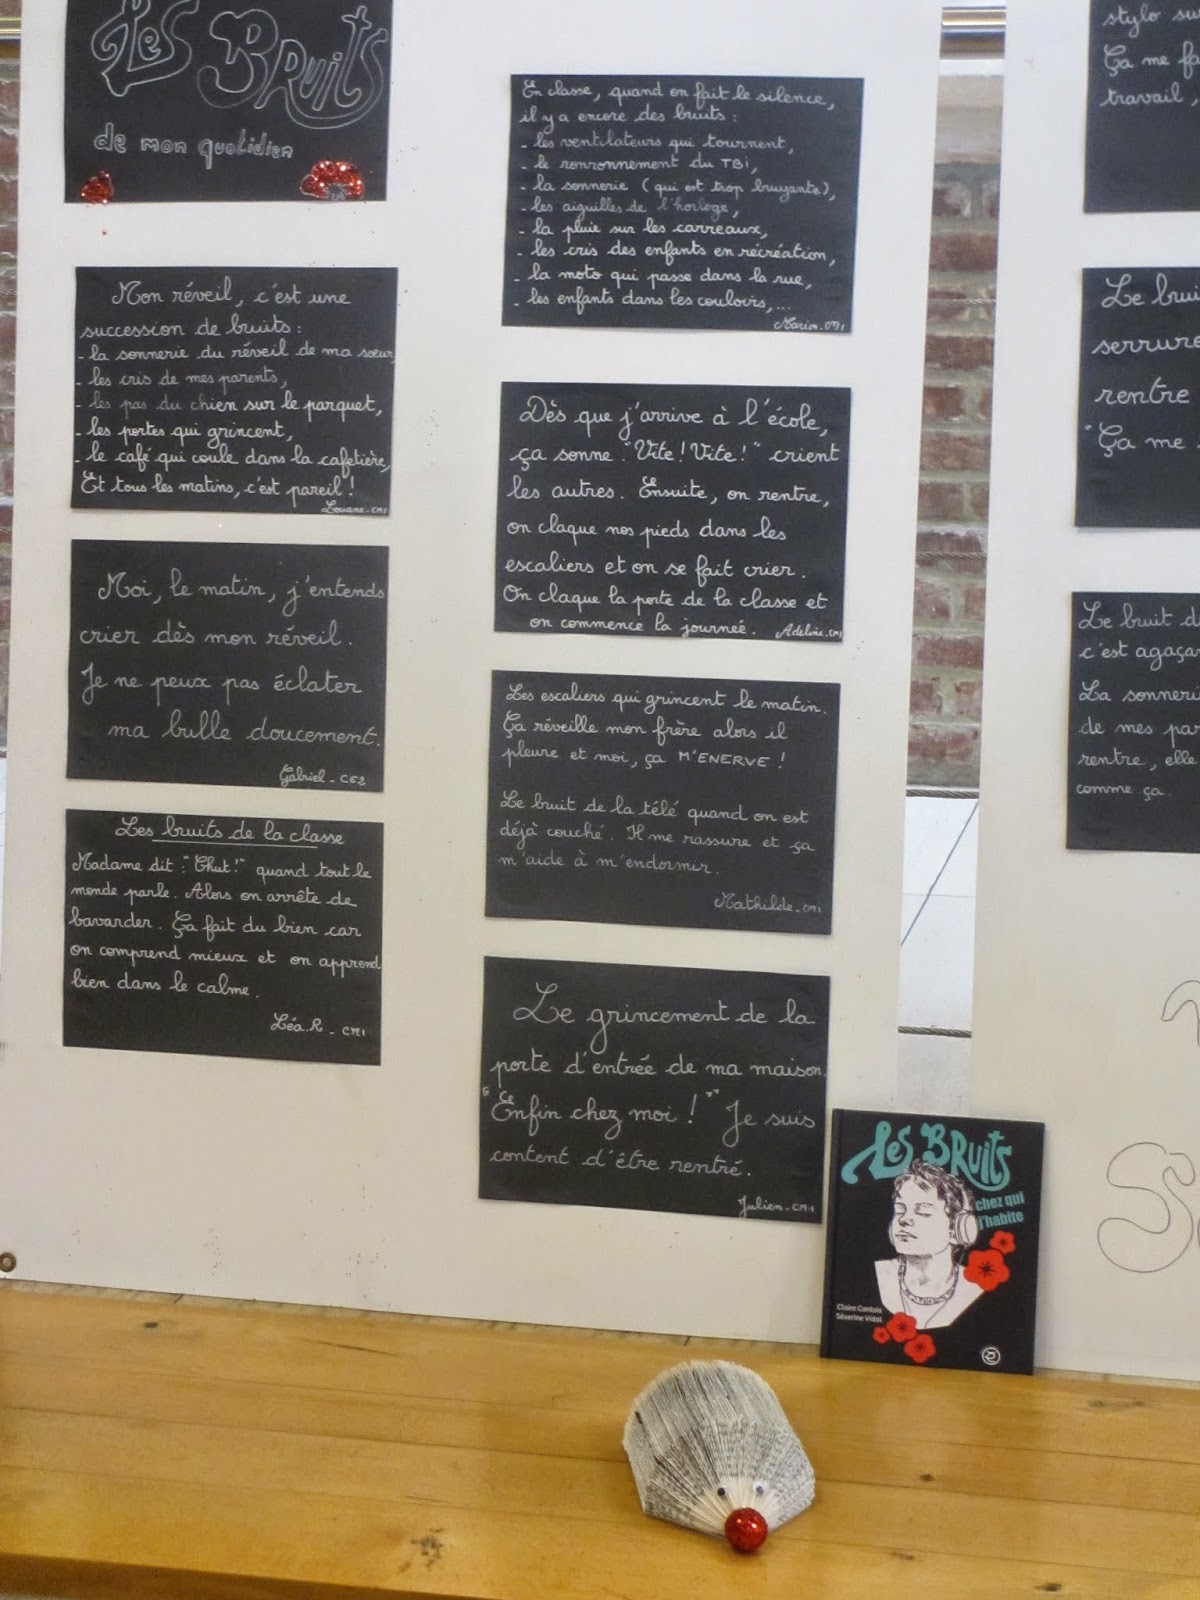 Les Bruits
de mon quotidien
Mon réveil, c'est une
succession de bruits :
- la sonnerie du réveil de ma sœur,
- les cris de mes parents,
- les pas du chien sur le parquet,
- les portes qui grincent,
- le café qui coule dans la cafetière,
Et tous les matins, c'est pareil !
Louane - CM1
Moi, le matin, j'entends
crier dès mon réveil.
Je ne peux pas éclater
ma bulle doucement.
Gabriel - CE2
Les bruits de la classe
Madame dit : "Chut!" quand tout le
monde parle. Alors on arrête de
bavarder. Ça fait du bien car
on comprend mieux et on apprend
bien dans le calme.
Léa.R - CM1
En classe, quand on fait le silence,
il y a encore des bruits :
- les ventilateurs qui tournent,
- le ronronnement du TBi,
- la sonnerie (qui est trop bruyante),
- les aiguilles de l'horloge,
- la pluie sur les carreaux,
- les cris des enfants en récréation,
- la moto qui passe dans la rue,
- les enfants dans les couloirs,...
CM1
Dès que j'arrive à l'école,
ça sonne. "Vite ! Vite !" crient
les autres. Ensuite, on rentre,
on claque nos pieds dans les
escaliers et on se fait crier.
On claque la porte de la classe et
on commence la journeé. Adeline. CM1
Les escaliers qui grincent le matin.
Ça réveille mon frère alors il
pleure et moi, ça M'ENERVE !
Le bruit de la télé quand on est
déjà couché. Il me rassure et ça
m'aide à m'endormir.
Mathilde - CM1
Le grincement de la
porte d'entrée de ma maison.
"Enfin chez moi !" Je suis
content d'être rentré.
Julien - CM1
Les Bruits
chez qui
j'habite
Claire Cantais
Séverine Vidal
stylo su
Ça me fa
travail,
Le brui
serrure
rentre
"Ça me
Le bruit d
c'est agaça
La sonneri
de mes par
rentre, elle
comme ça.